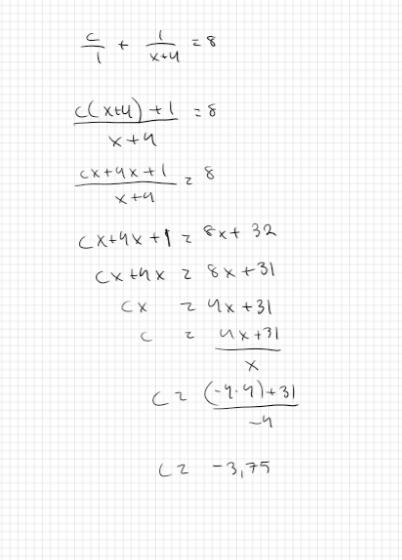 c/1 + 1/(x+4) = 8
(c(x+4)+1)/(x+4) = 8
(cx+4x+1)/(x+4) = 8
cx+4x+1 = 8x+32
cx+4x = 8x+31
cx = 4x+31
c = (4x+31)/x
c = ((-4·4)+31)/-4
c = -3,75